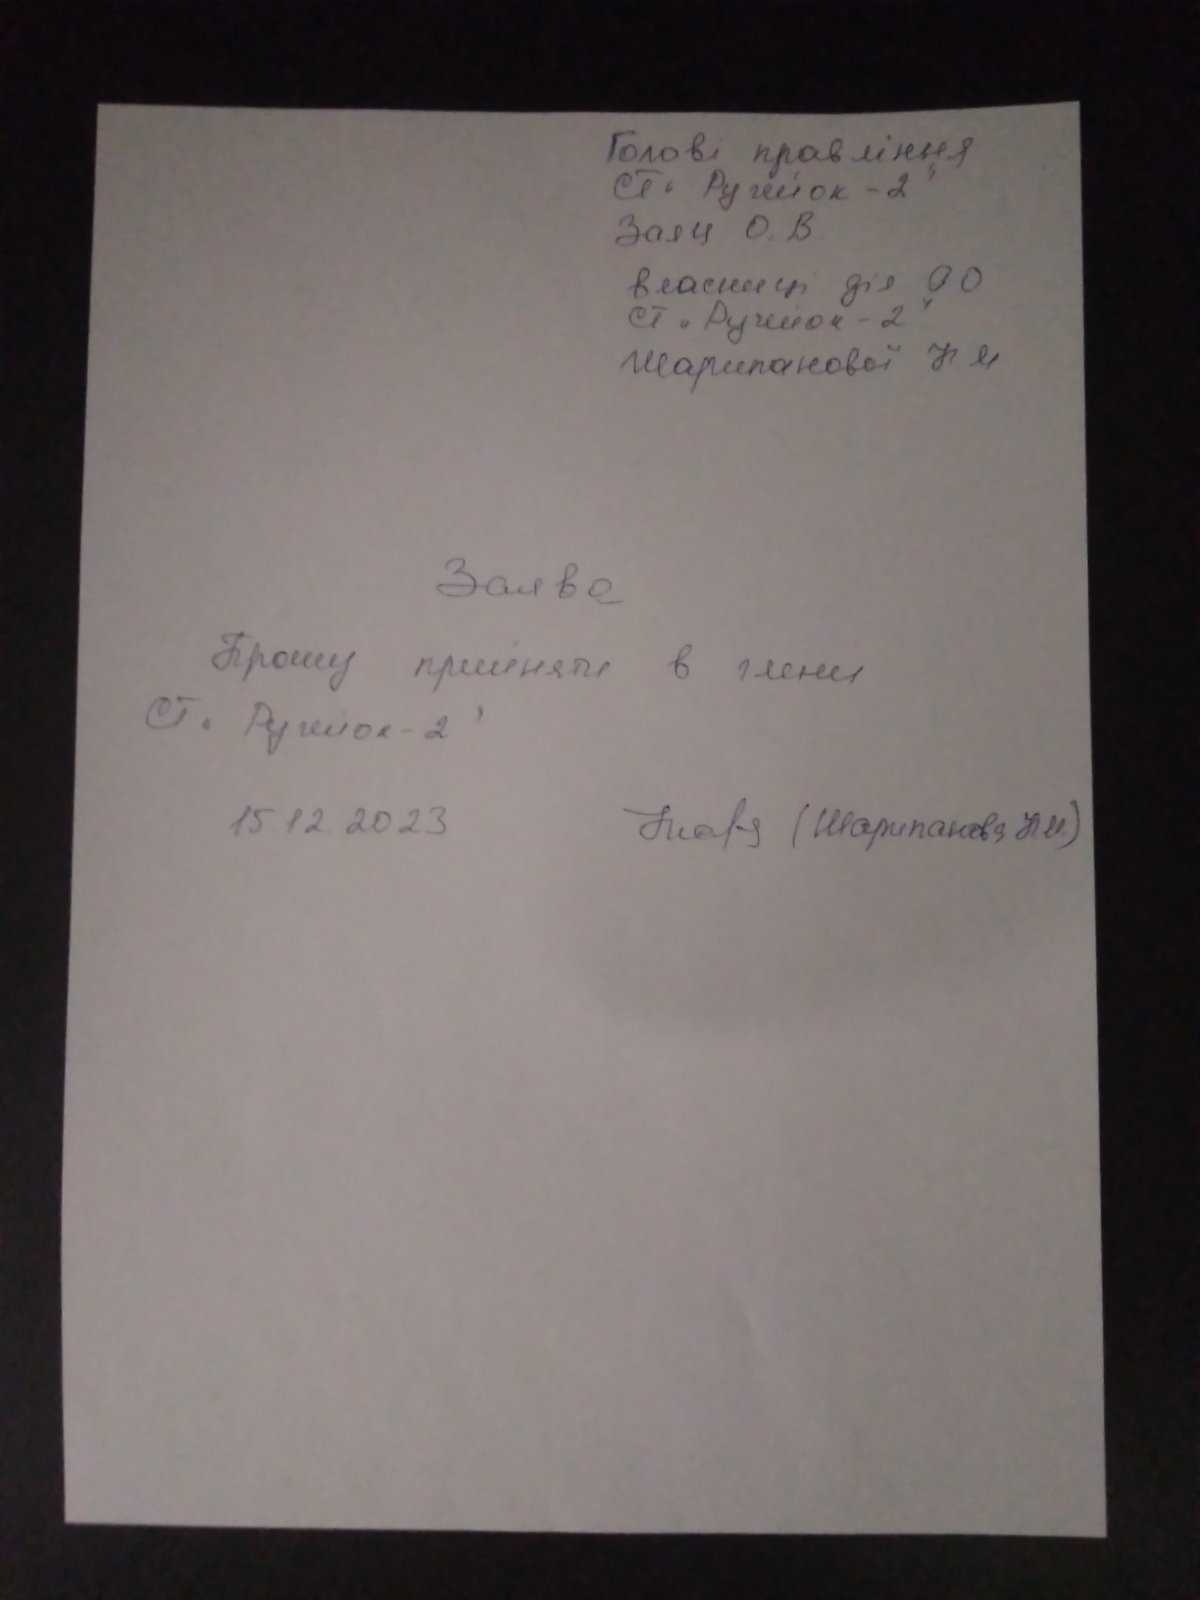 Голові правління
СТ „Ручейок-2"
Заяц О.В
власниці діл 90
СТ „Ручейок-2"
Шарипанової Н М
Заява
Прошу прийняти в члени
СТ „Ручейок-2"
15.12.2023 (Шарипанова Н М)